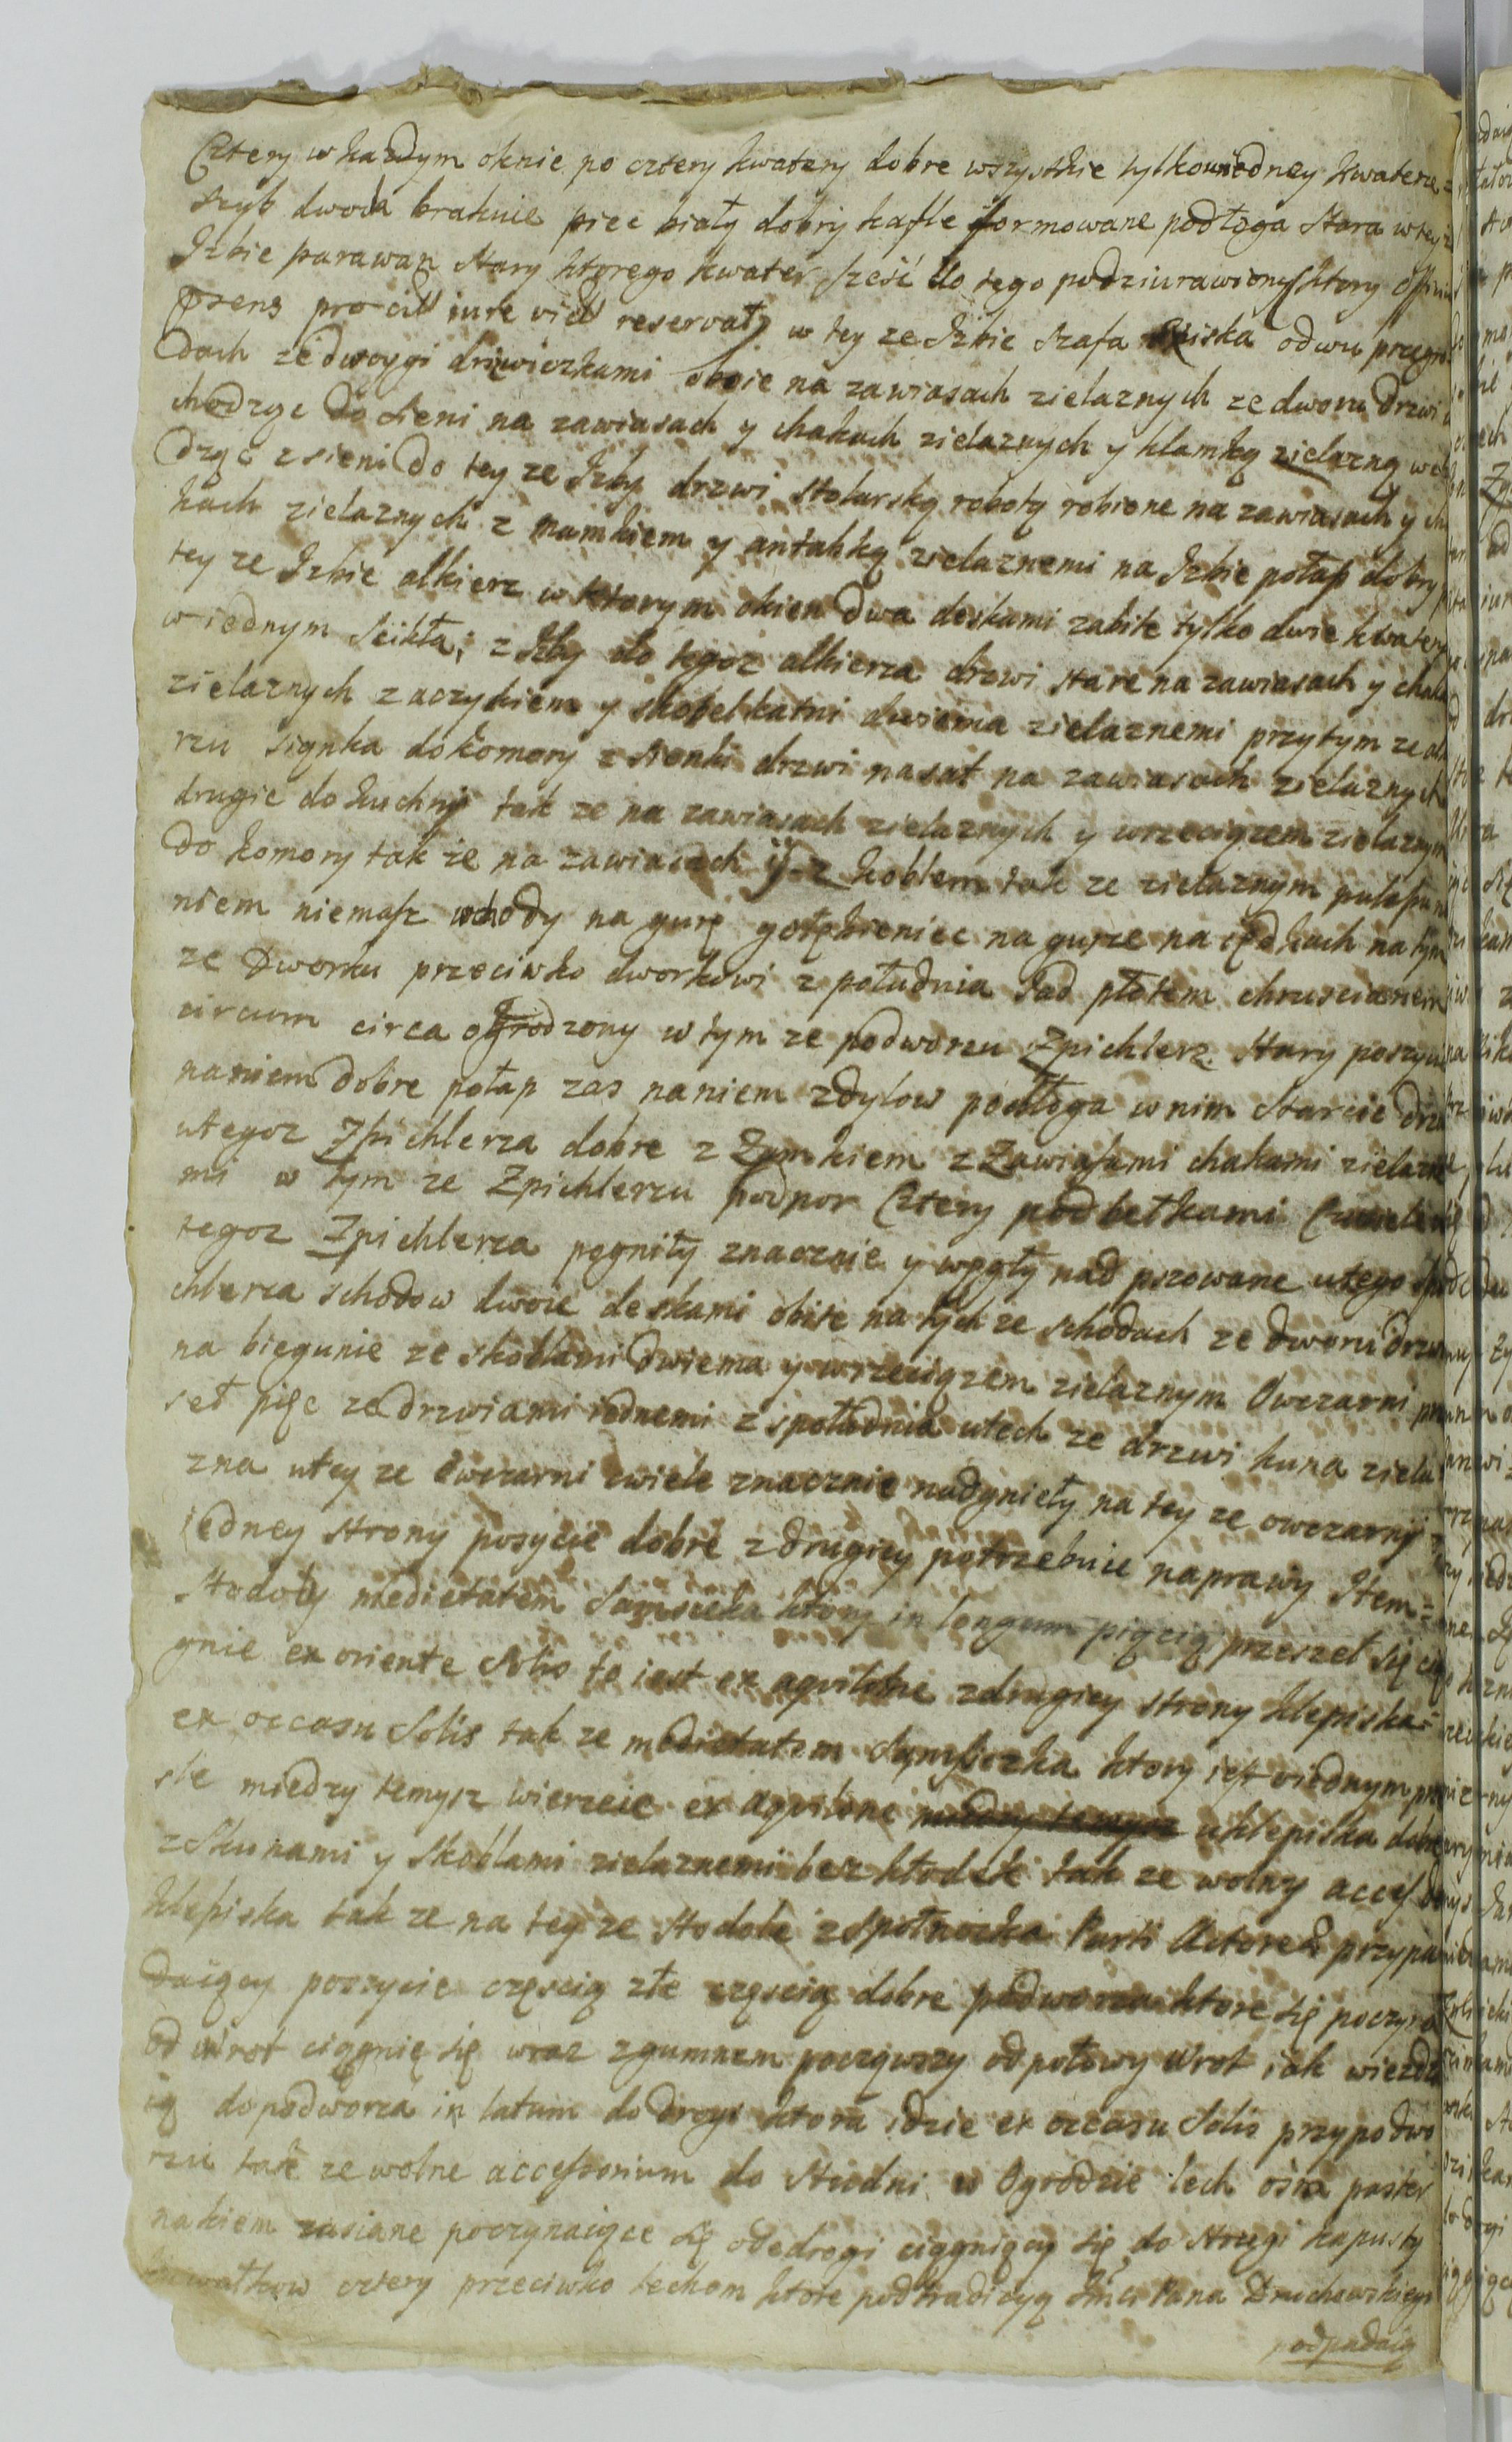 Cztery w kazdym oknie po cztery kwatery dobre wszystkie tylko wiedney kwaterze
szyb dwoch braknie piec biały dobry kafle formowane podłoga stara w tey
Izbie parawan stary ktorego kwater sześć do tego podziurawiony ktory
psens pro cill iure vill reservat w tey ze Izbie szafa niska o dwu przegro
dach ze dwoygi drzwiczkami oboie na zawiasach zielaznych ze dworu drzwi
chodząc do sieni na zawiasach y chakach zielaznych y klamką zielazną wcho
dząc z sieni do tey ze Izby drzwi stolarską robotą robione na zawiasach y cha
kach zielaznych z namkiem y antabką zielaznemi na Izbie połap dobry
tey ze Izbie alkierz w ktorym okien dwa deskami zabite tylko dwie kwatery
w iednym sćikła; z Izby do tegoz alkierza drzwi stare na zawiasach y chaka
zielaznych z aczykiem y skobelkatni dwiema zielaznemi przytym ze alkie
rzu siynka do komory z sionki drzwi nasat na zawiasach zielaznych
drugie do kuchni tak ze na zawiasach zielaznych y wrzeciązem zielaznym
do komory tak ze na zawiasach y z koblem tak ze zielaznym pułapu na
niem niemasz wschody na gurę gołębieniec na gurze na rzędkach na tym
ze Dworku przeciwko dworkowi z południa sad płotem chruscianem
circum circa ogrodzony w tym ze podworzu Zpichlerz Stary poszycie
naniem dobre połap zas naniem z dylow podłoga w nim starcic drzwi
utegoz Zpichlerza dobre z Zamkiem z Zawiasami chakami zielazne
mi w tym ze Zpichlerzu podpor Cztery podbelkami
tegoz Zpichlerza pogniły znacznie y węgły nad psowane utego Zpi
chlerza schodow dwoie deskami obite na tych ze schodach ze dworu drzwi
na biegunie ze skoblami dwiema y wrzeciązem zielaznym Owczarni prze
seł pięc ze drzwiami iednemi z południa utech ze drzwi kuna ziela
zna utey ze Owczarni cwiele znacznie nadgnieły na tey ze owczarni z
iedney strony posycie dobre z drugiey potrzebuie naprawy Item
stodoły medietatem Samsieka ktory in longum pięcią przezeł się cią
gnie ex oriente Solis to iest ex aquilone z drugiey strony klepiska
ex occasu Solis tak ze medietatem Sąmsieczka ktory iest viednym prze
śle miedzy temysz wierzeie ex aquilone miedzy temysz u klepiska dobre
z Skunami y Skoblami zielaznemi bez kłodek tak ze wolny access do
klepiska tak ze na tey ze stodole z Społnoczka Parti Actorea przypa
daiący poszycie częscią złe częscią dobre podworza ktore się poczyna
od wrot ciągnię się wraz z gumnem począwszy od połowy Wrot iak wiezdza
ią do podworza in latum do drogi ktora idzie ex occasu Solis przy podwo
rzu tak ze wolne accessorium do Studni w Ogrodzie lech ośm paster
nakiem zasiane poczynaiące się odedrogi ciągniący się do Strugi kapusty
kawałkow cztery przeciwko lechom ktore podtradicyą Pana Druchowskiego
podpadaią